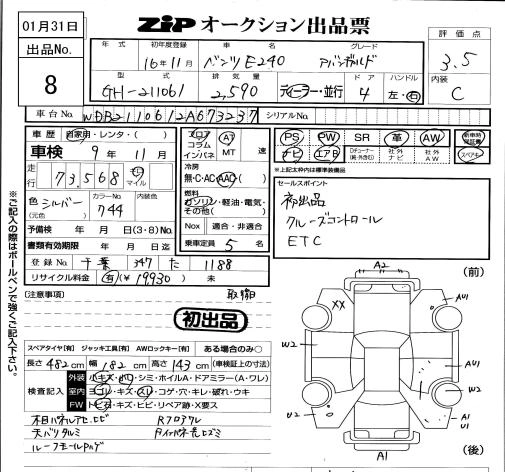 01月31日
出品No.
8
ZIP オークション出品票
年式 初年度登録 車名 グレード
16年11月 ベンツ E240 アバンギャルド
型式 排気量 ドア ハンドル
GH-211061 2,590 ディーラー・並行 4 左・右
評価点
3.5
内装
C
車台No. WDB2110612A673237 シリアルNo.
車歴 自家用・レンタ・( )
車検 9年 11月
走行 73,568 キロ マイル
色 シルバー (元色) カラーNo. 744
予備検 年 月 日(3・8)No.
書類有効期限 年 月 日迄
登録No. 千葉 347 た 1188
リサイクル料金 有(¥19930) 未
フロア コラム インパネ AT MT 速
冷房 無・C・AC・AAC( )
燃料 ガソリン・軽油・電気・その他( )
Nox 適合・非適合
乗車定員 5 名
PS PW SR 革 AW 新車時保証書
ナビ エアB Dチューナー(純・外含む) 社外ナビ 社外AW スペアキー
※上記太枠内は標準装備品
セールスポイント
初出品
クルーズコントロール
ETC
(注意事項) 取説
初出品
スペアタイヤ[有] ジャッキ工具[有] AWロックキー[有] ある場合のみ○
長さ 482 cm 幅 182 cm 高さ 143 cm (車検証上の寸法)
検査記入
外装 小キズ・凹・シミ・ホイルA・ドアミラー(A・ワレ)
室内 ヨゴレ・キズ・スレ・コゲ・穴・キレ・破れ・ウキ
FW トビ石・キズ・ヒビ・リペア跡・X要ス
木目パネルアセ、ヒビ
天バリタルミ
ルーフモール
※ご記入の際はボールペンで強くご記入下さい。
(前)
A2
XX
AU1
W2
AU1
W2
U2
A1
U1
A1
(後)